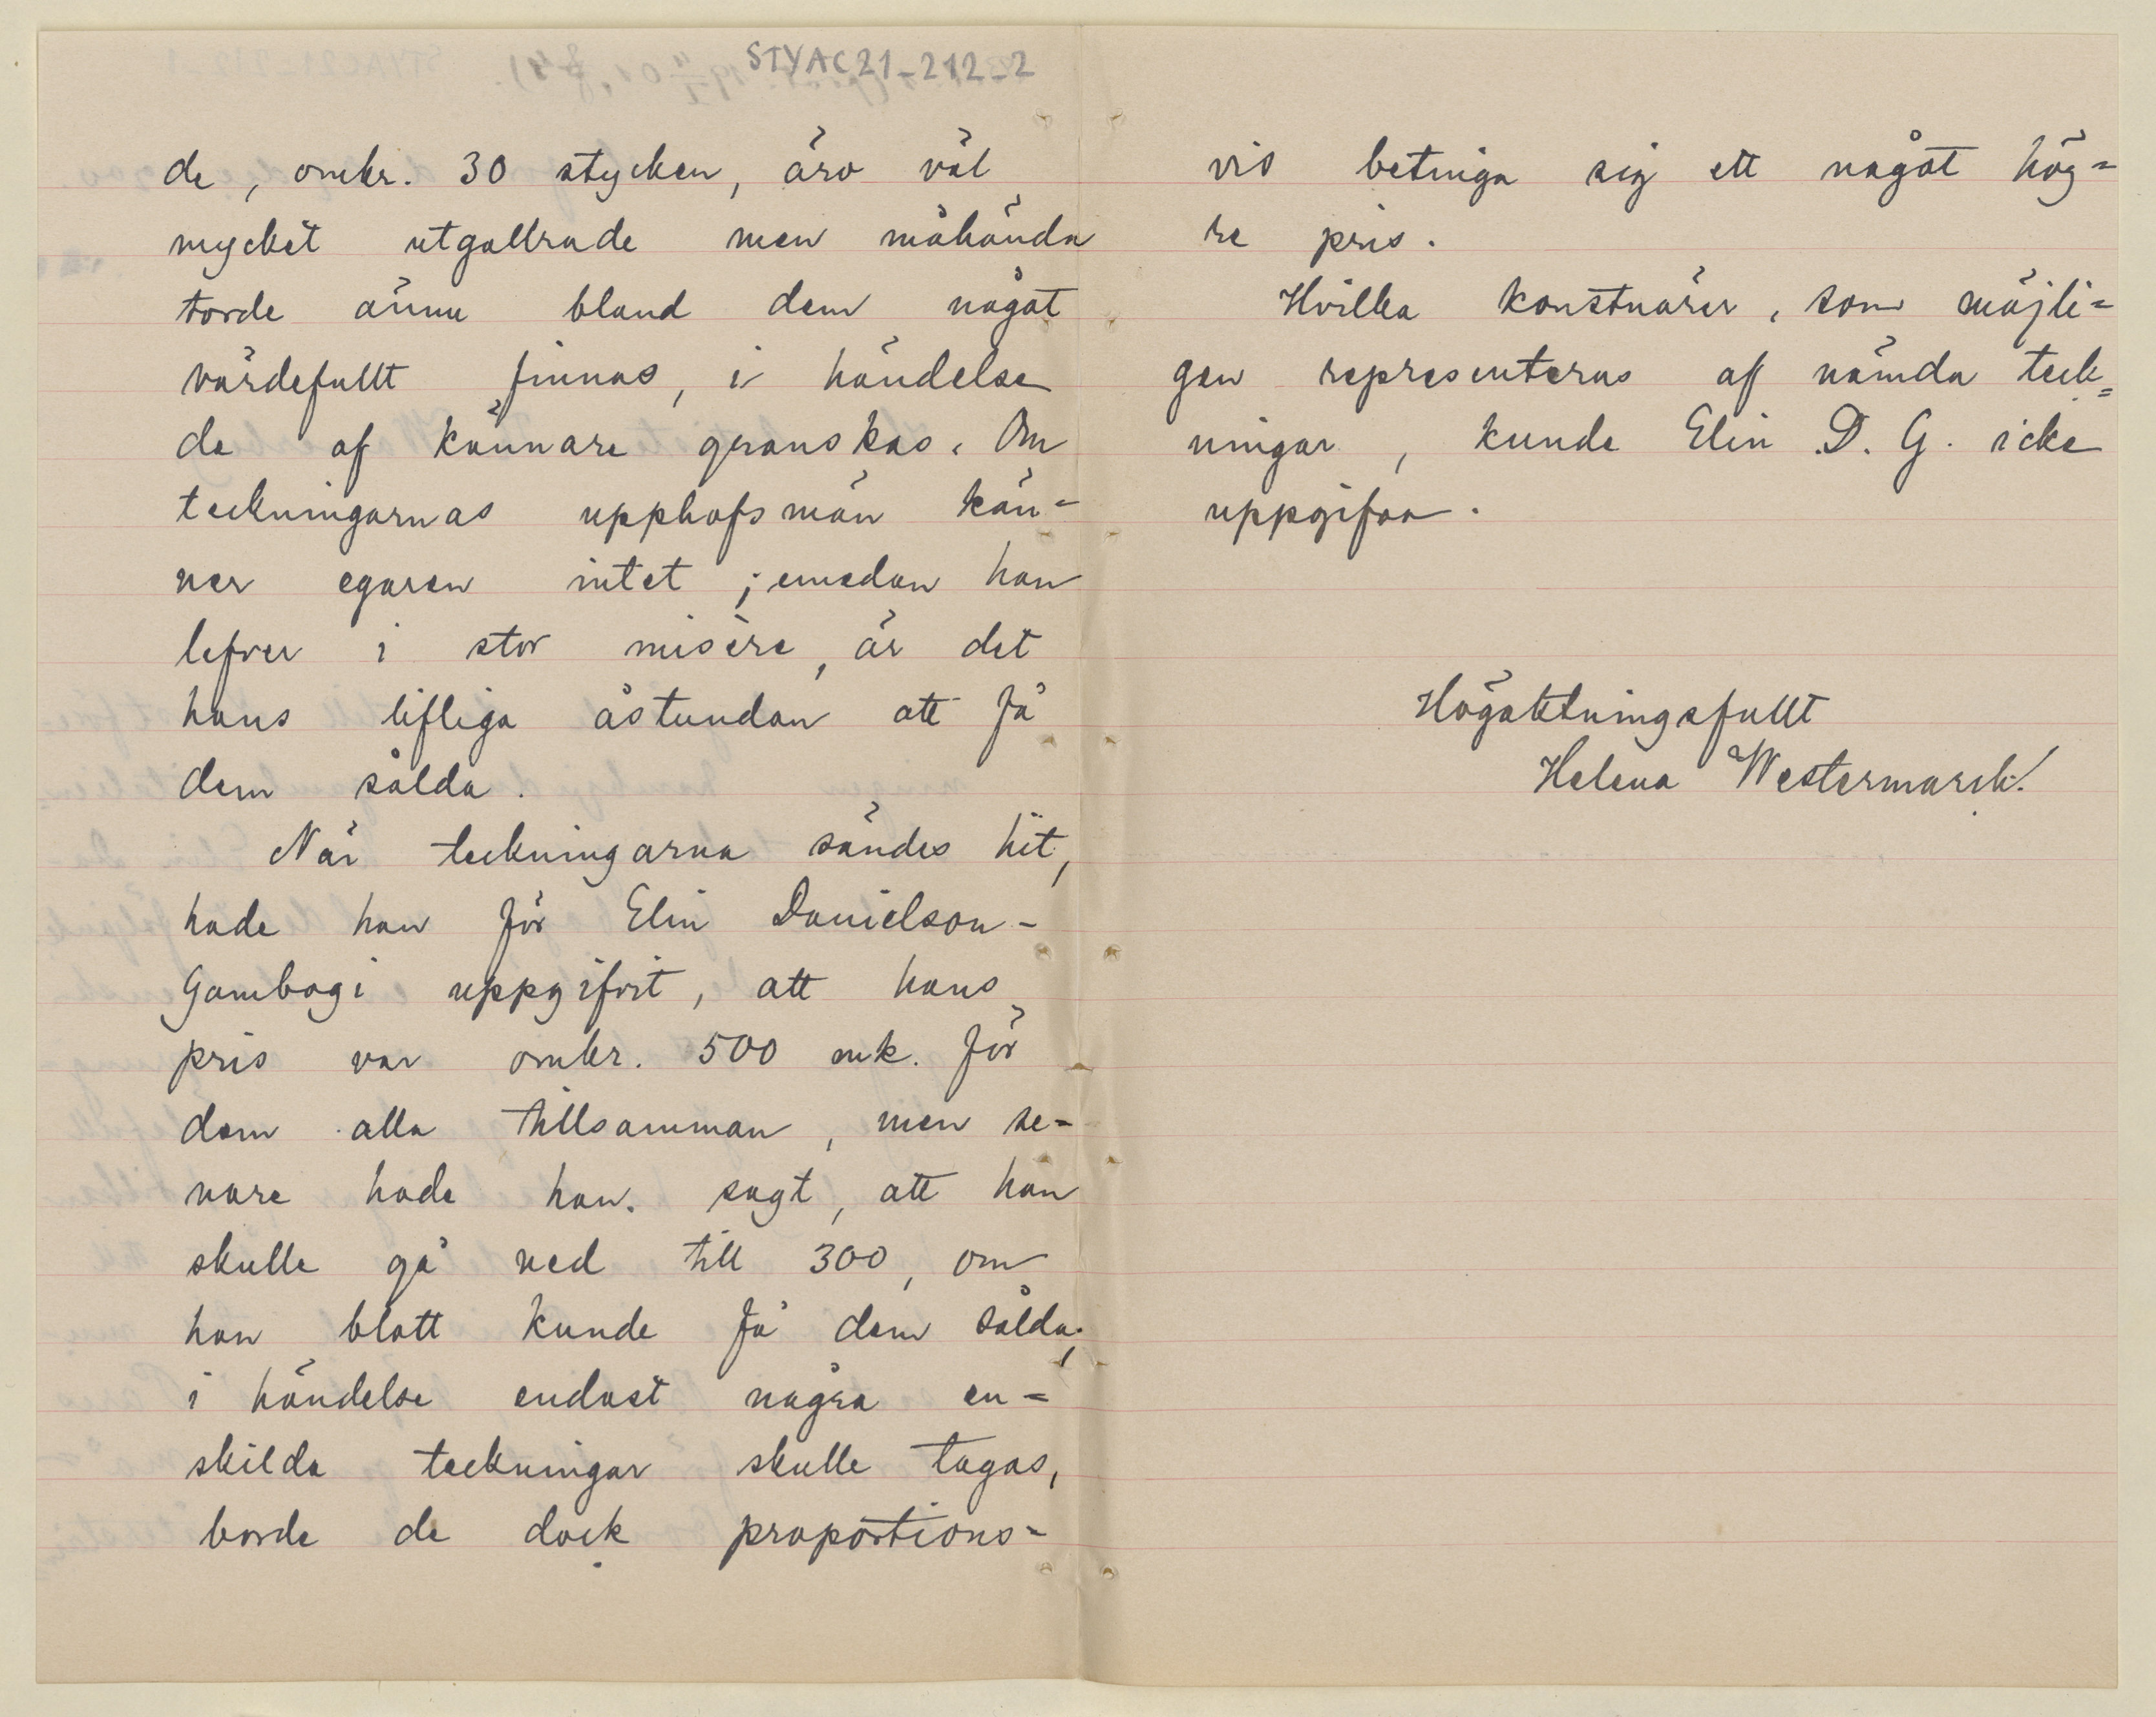 STYAC21_212_2
de, omkr. 30 stycken, äro väl
mycket utgallrade men måhända
torde ännu bland dem något
värdefullt finnas, i händelse
de af kännare granskas. Om
teckningarnas upphofsmän kän=
ner egaren intet; emedan han
lefver i stor misère, är det
hans lifliga åstundan att få
dem sålda.
När teckningarna sändes hit,
hade han för Elin Danielson-
Gambogi uppgifvit, att hans
pris var omkr. 500 mk. för
dem alla tillsamman, men se=
nare hade han. sagt, att han
skulle gå ned till 300, om
han blott kunde få dem sålda;
i händelse endast några en=
skilda teckningar skulle tagas,
borde de dock proportions=
vis betinga sig ett något hög=
re pris.
Hvilka konstnärer, som möjli=
gen representeras af nämda teck=
ningar, kunde Elin D. G. icke
uppgifva.
Högaktningsfullt
Helena Westermarck.